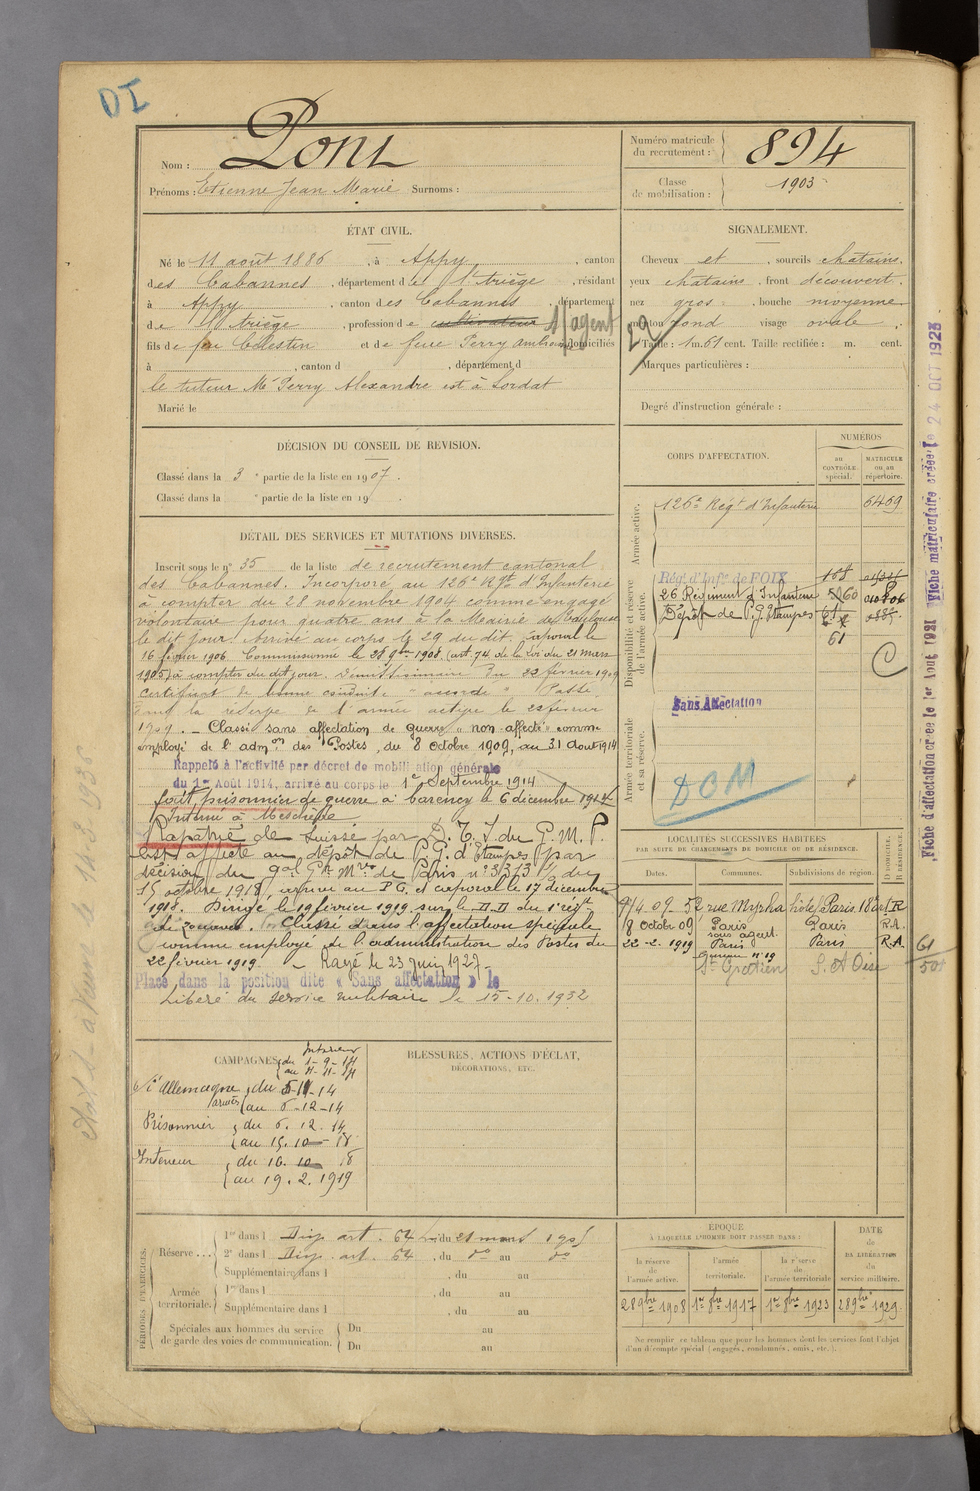 DI
Nom : Pont
Prénoms : Etienne Jean Marie Surnoms :
Numéro matricule du recrutement : 894
Classe de mobilisation : 1903
ÉTAT CIVIL.
Né le 11 août 1886, à Appy, canton
des Cabannes, département de l'Ariège, résidant
à Appy, canton des Cabannes, département
de l'Ariège, profession de cultivateur s/agent
fils de feu Célestin et de feue Perry domiciliés
à , canton d , département d
le tuteur Mr Perry Alexandre est à Lordat
Marié le
SIGNALEMENT.
Cheveux et , sourcils chatains,
yeux chatains, front découvert,
nez gros, bouche moyenne
menton rond visage ovale,
Taille : 1 m. 61 cent. Taille rectifiée : m. cent.
Marques particulières :
Degré d'instruction générale :
DÉCISION DU CONSEIL DE REVISION.
Classé dans la 3e partie de la liste en 1907.
Classé dans la e partie de la liste en 19 .
DÉTAIL DES SERVICES ET MUTATIONS DIVERSES.
Inscrit sous le n° 35 de la liste de recrutement cantonal
des Cabannes. Incorporé au 126e Rgt d'Infanterie
à compter du 28 novembre 1904 comme engagé
volontaire pour quatre ans à la Mairie de Toulouse
le dit jour. Arrivé au corps le 29 du dit. Caporal le
16 février 1906. Commissionné le 28 9bre 1908 (art. 74 de la Loi du 21 mars
1905) à compter du dit jour. Démissionnaire du 22 février 1909
Certificat de bonne conduite "accordé" Passé
dans la réserve de l'armée active le 22 février
1909. — Classé sans affectation de guerre "non affecté" comme
employé de l'admon des Postes, du 8 Octobre 1909, au 31 Aout 1914
Rappelé à l'activité par décret de mobilisation générale
du 1er Août 1914, arrivé au corps le 1er Septembre 1914
Fait prisonnier de guerre à Carency le 6 décembre 1914
Interné à Meschède
Rapatrié de Suisse par D. T. I du G. M. P.
Est affecté au dépôt de P.G. d'Etampes par
décision du gal Gr Mre de Paris n° 3373 P/G du
15 octobre 1918, arrivé au P.G. et caporal le 17 décembre
1918. Dirigé le 19 février 1919 sur le D.D du 1er régt
de zouaves. Classé dans l'affectation spéciale
comme employé de l'administration des Postes du
22 février 1919. — Rayé le 23 juin 1927.
Placé dans la position dite « Sans affectation » le
Libéré du service militaire le 15-10.1932
CORPS D'AFFECTATION.
NUMÉROS
au CONTRÔLE spécial.
MATRICULE ou au répertoire.
Armée active.
126e Régt d'Infanterie 6469
Disponibilité et réserve de l'armée active.
Rég. d'Infie de FOIX
26 Régiment d'Infanterie
Dépôt de P.G. Etampes
61
Armée territoriale et sa réserve.
Sans Affectation
DCM
LOCALITÉS SUCCESSIVES HABITÉES
PAR SUITE DE CHANGEMENTS DE DOMICILE OU DE RÉSIDENCE.
Dates. Communes. Subdivisions de région. D DOMICILE. R RÉSIDENCE.
9/4 09 52 rue Myrha hôtel Paris 18e art R
8 Octobre 09 Paris Paris R.A.
sous agent.
22-2-1919 Paris Paris R.A.
St Gratien S. et Oise
61
501
CAMPAGNES
Intérieur
du 1-9-14
Ct Allemagne
armées
au 6-12-14
Prisonnier du 6.12.14
au 15.10-18
Intérieur du 16.10-18
au 19.2.1919
BLESSURES, ACTIONS D'ÉCLAT,
DÉCORATIONS, ETC.
PÉRIODES D'EXERCICES.
Réserve ... 1re dans l Disp art. 64 L. du 21 mars 1905
2e dans l Disp. art. 64, du do au do
Supplémentaire dans l , du au
Armée territoriale. 1re dans l , du au
Supplémentaire dans l , du au
Spéciales aux hommes du service de garde des voies de communication. Du au
Du au
ÉPOQUE
À LAQUELLE L'HOMME DOIT PASSER DANS :
la réserve de l'armée active. l'armée territoriale. la réserve de l'armée territoriale
DATE de LIBÉRATION du service militaire.
28 9bre 1908 1er 8bre 1917 1er 8bre 1923 28 9bre 1929.
Ne remplir ce tableau que pour les hommes dont les services font l'objet
d'un décompte spécial (engagés, condamnés, omis, etc.).
Fiche d'affectation créée le 1er Août 1921 Fiche matriculaire créée le 24 OCT 1923